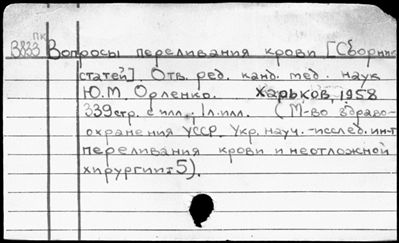 ПК
В823 Вопросы переливания крови [Сборник
статей]. Отв. ред. канд. мед. наук
Ю.М. Орленко. Харьков, 1958
339 стр. с илл.; 1л. илл. (М-во здраво-
охранения УССР. Укр. науч.-исслед. ин-т
переливания крови и неотложной
хирургии: 5).